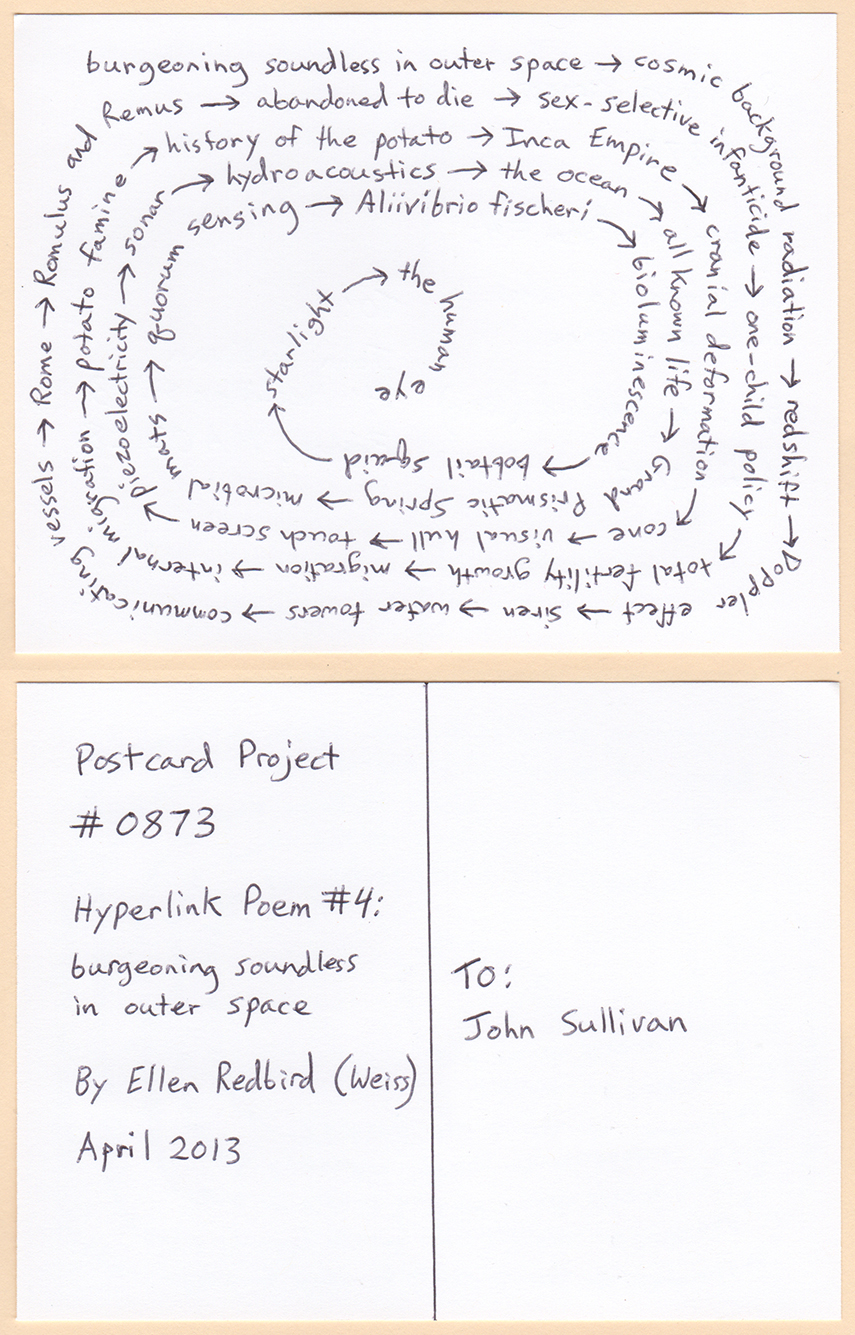 burgeoning soundless in outer space → cosmic background radiation → redshift → Doppler effect → siren → water towers → communicating vessels → Rome → Romulus and Remus → abandoned to die → sex-selective infanticide → one-child policy → total fertility growth → migration → internal migration → potato famine → history of the potato → Inca Empire → cranial deformation → cone → visual hull → touch screen → piezoelectricity → sonar → hydroacoustics → the ocean → all known life → Grand Prismatic Spring → microbial mats → quorum sensing → Aliivibrio fischeri → bioluminescence → bobtail squid → starlight → the human eye
Postcard Project
# 0873
Hyperlink Poem #4:
burgeoning soundless
in outer space
By Ellen Redbird (Weiss)
April 2013
To:
John Sullivan